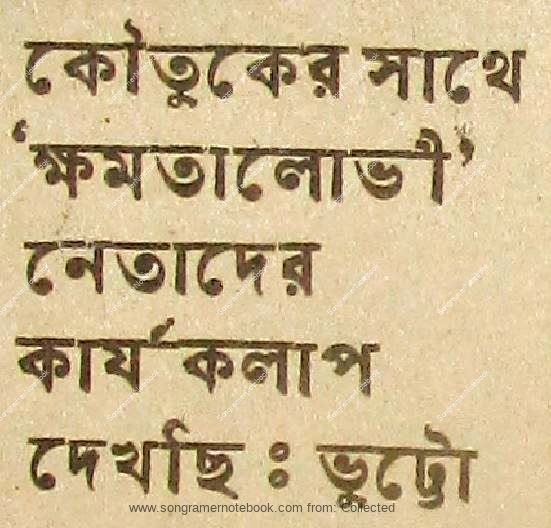 কৌতুকের সাথে
‘ক্ষমতালোভী’
নেতাদের
কার্যকলাপ
দেখছি : ভুট্টো
www.songramernotebook.com from: Collected